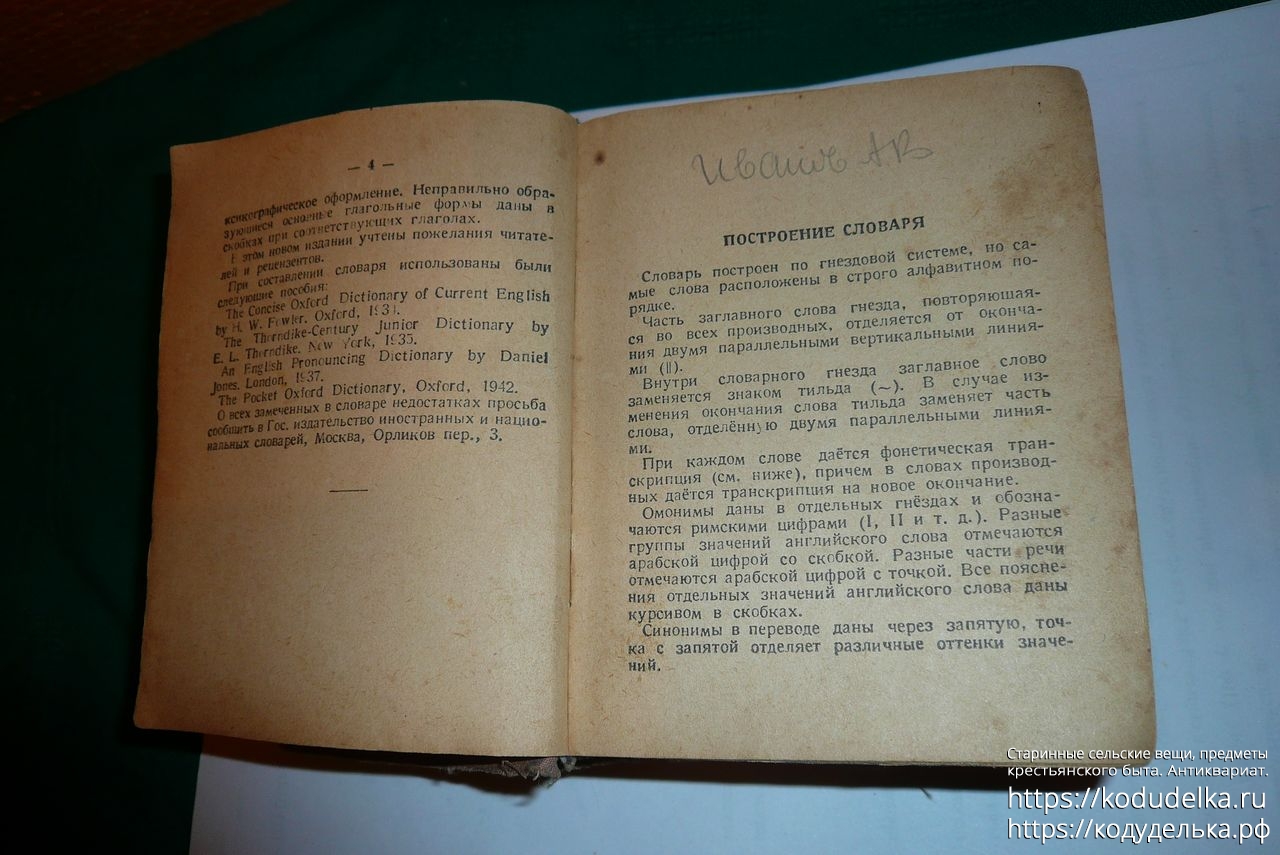 — 4 —
ксикографическое оформление. Неправильно обра-
зующиеся основные глагольные формы даны в
скобках при соответствующих глаголах.
В этом новом издании учтены пожелания читате-
лей и рецензентов.
При составлении словаря использованы были
следующие пособия:
The Concise Oxford Dictionary of Current English
by H. W. Fowler. Oxford,
The Thorndike-Century Junior Dictionary by
E. L. Thorndike. New York, 1935.
An English Pronouncing Dictionary by Daniel
Jones. London, 1937.
The Pocket Oxford Dictionary, Oxford, 1942.
О всех замеченных в словаре недостатках просьба
сообщить в Гос. издательство иностранных и нацио-
нальных словарей, Москва, Орликов пер., 3.
Иванов АВ
ПОСТРОЕНИЕ СЛОВАРЯ
Словарь построен по гнездовой системе, но са-
мые слова расположены в строго алфавитном по-
рядке.
Часть заглавного слова гнезда, повторяющая-
ся во всех производных, отделяется от оконча-
ния двумя параллельными вертикальными линия-
ми (||).
Внутри словарного гнезда заглавное слово
заменяется знаком тильда (~). В случае из-
менения окончания слова тильда заменяет часть
слова, отделённую двумя параллельными линия-
ми.
При каждом слове даётся фонетическая тран-
скрипция (см. ниже), причем в словах производ-
ных даётся транскрипция на новое окончание.
Омонимы даны в отдельных гнёздах и обозна-
чаются римскими цифрами (I, II и т. д.). Разные
группы значений английского слова отмечаются
арабской цифрой со скобкой. Разные части речи
отмечаются арабской цифрой с точкой. Все поясне-
ния отдельных значений английского слова даны
курсивом в скобках.
Синонимы в переводе даны через запятую, точ-
ка с запятой отделяет различные оттенки значе-
ний.
Старинные сельские вещи, предметы
крестьянского быта. Антиквариат.
https://kodudelka.ru
https://кодуделька.рф